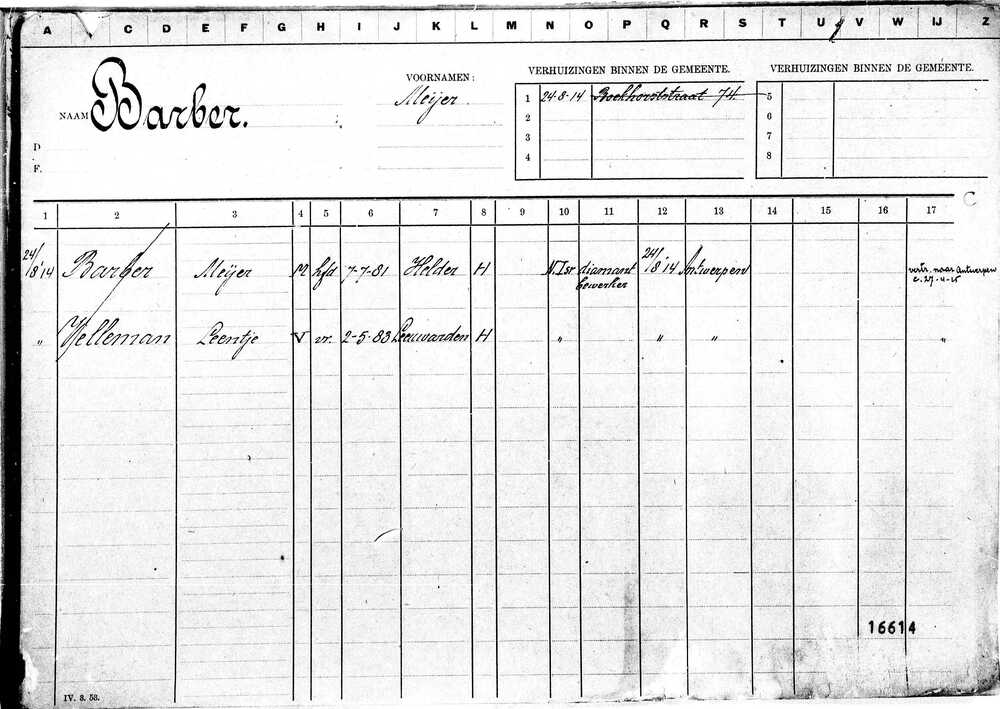 A C D E F G H I J K L M N O P Q R S T U V W IJ Z
NAAM Barber.
VOORNAMEN:
Meijer.
D
F.
VERHUIZINGEN BINNEN DE GEMEENTE.
1 24-8-14 Boekhorststraat 74.
2
3
4
VERHUIZINGEN BINNEN DE GEMEENTE.
5
6
7
8
C
1 2 3 4 5 6 7 8 9 10 11 12 13 14 15 16 17
24/8 '14 Barber Meijer M hfd 7-7-81 Helder H N.Isr diamant bewerker 24/8 '14 Antwerpen vertr. naar Antwerpen c. 27-4-15
" Velleman Leentje V vr. 2-5-83 Leeuwarden H " " " "
16614
IV. 3. 53.